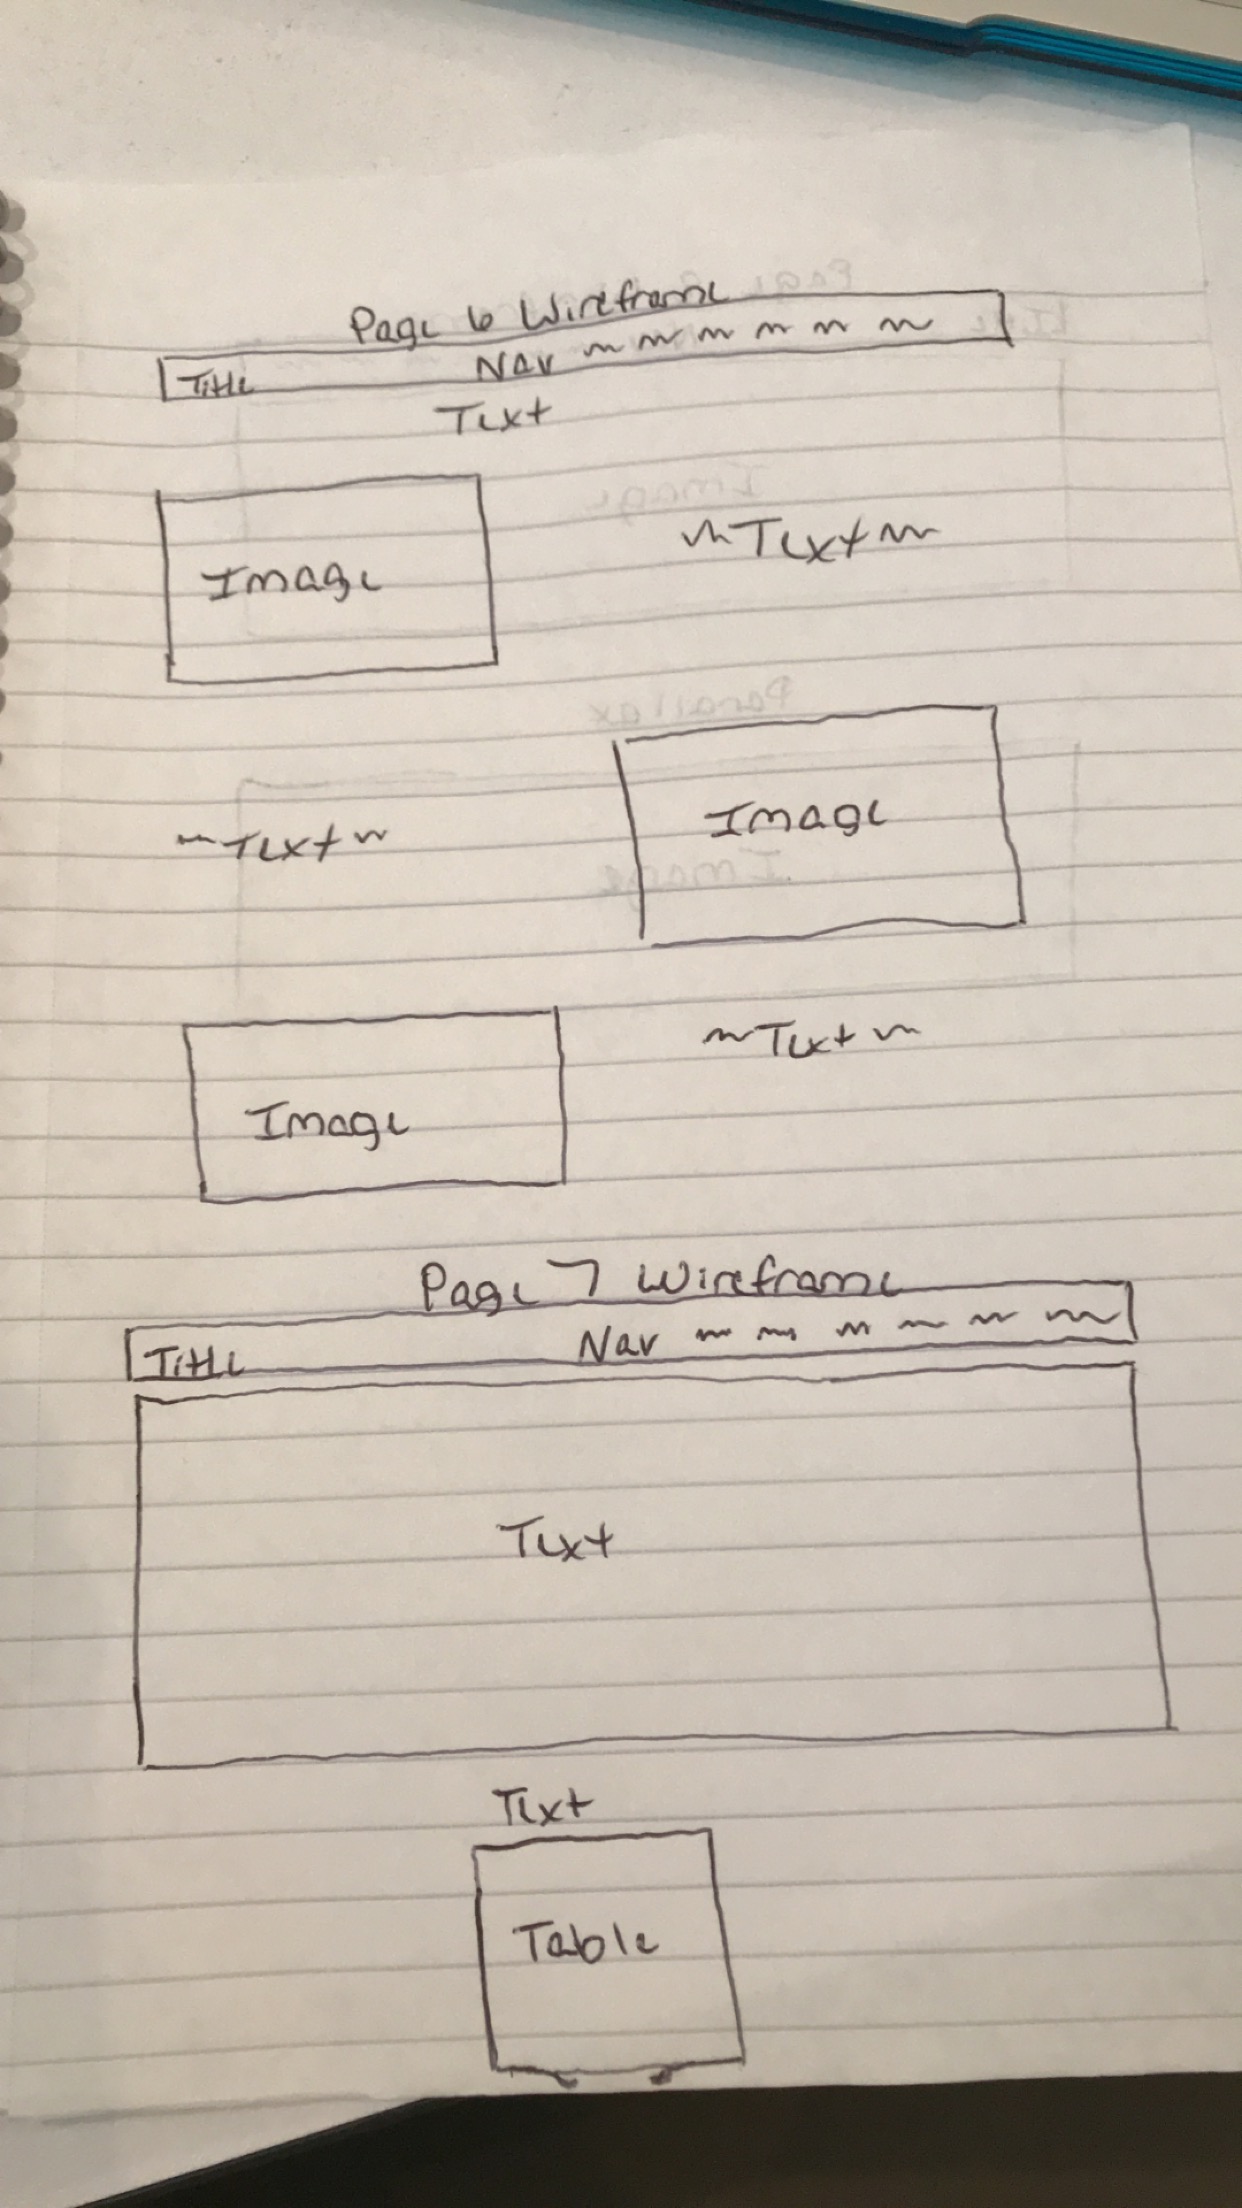 Page 6 Wireframe
Title Nav
Text
Image Text
Text Image
Image Text
Page 7 Wireframe
Title Nav
Text
Text
Table